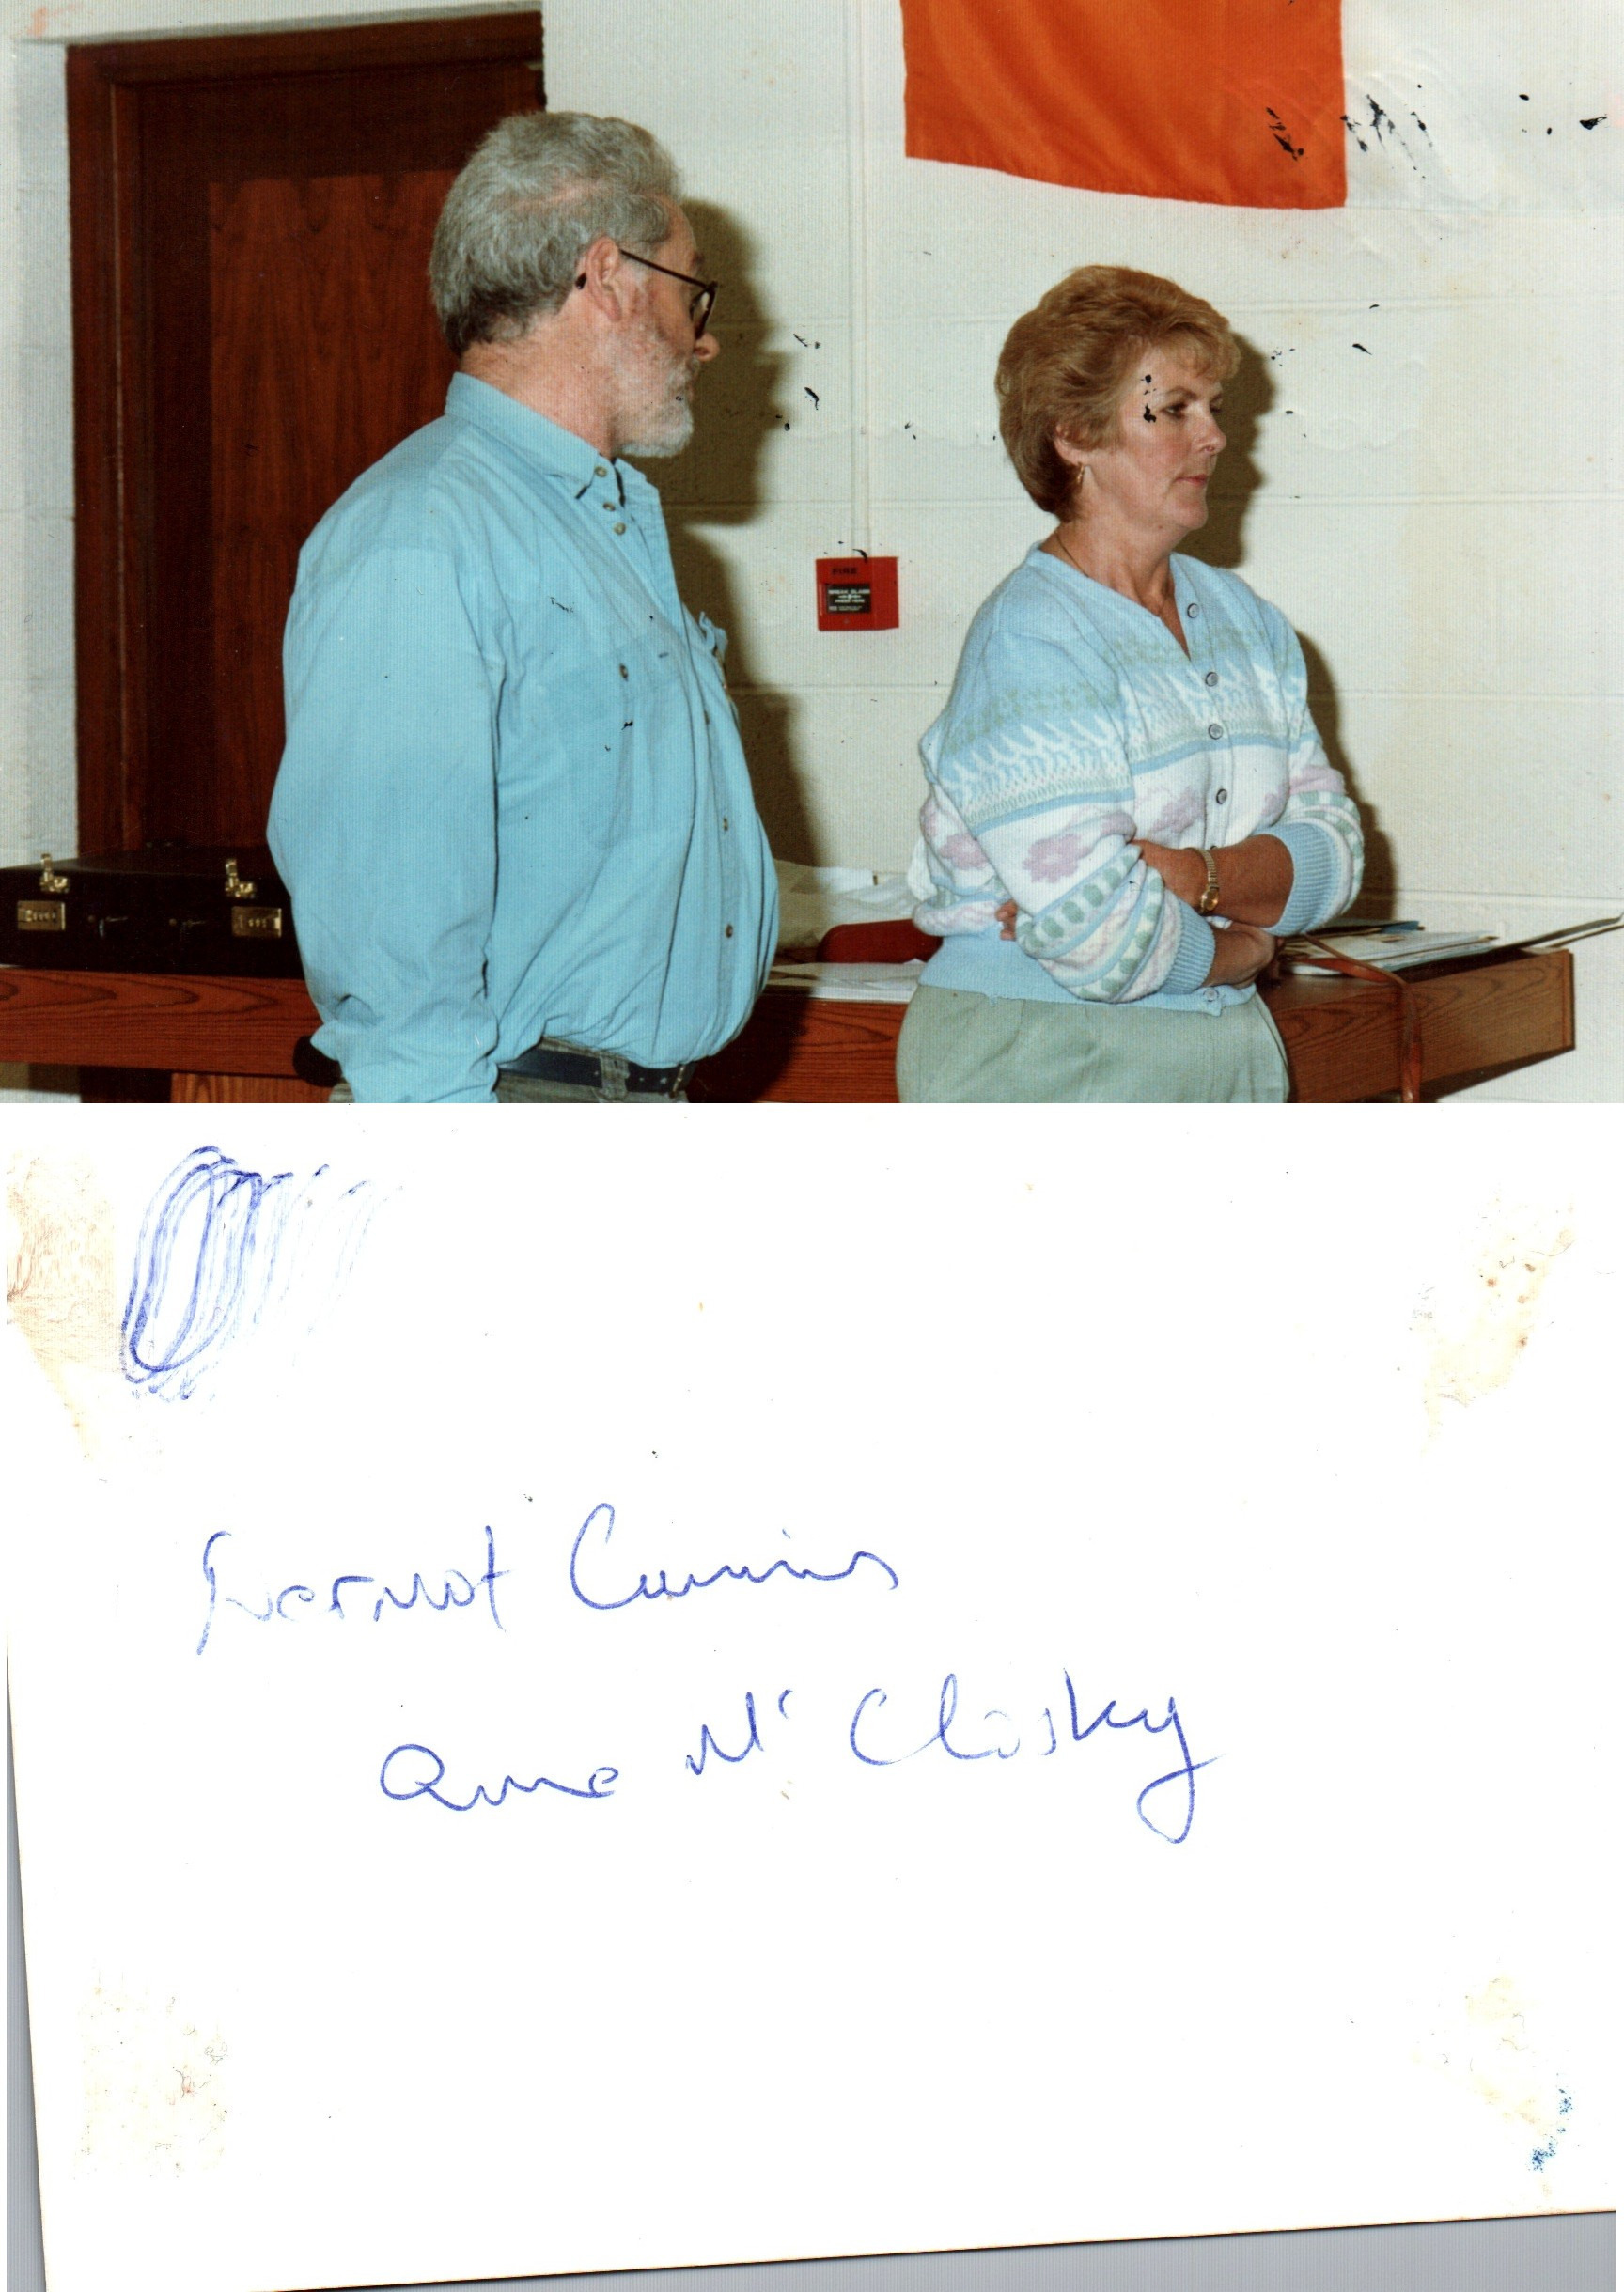 FIRE
BREAK GLASS
PRESS HERE
Dermot
Anne Mc Closky